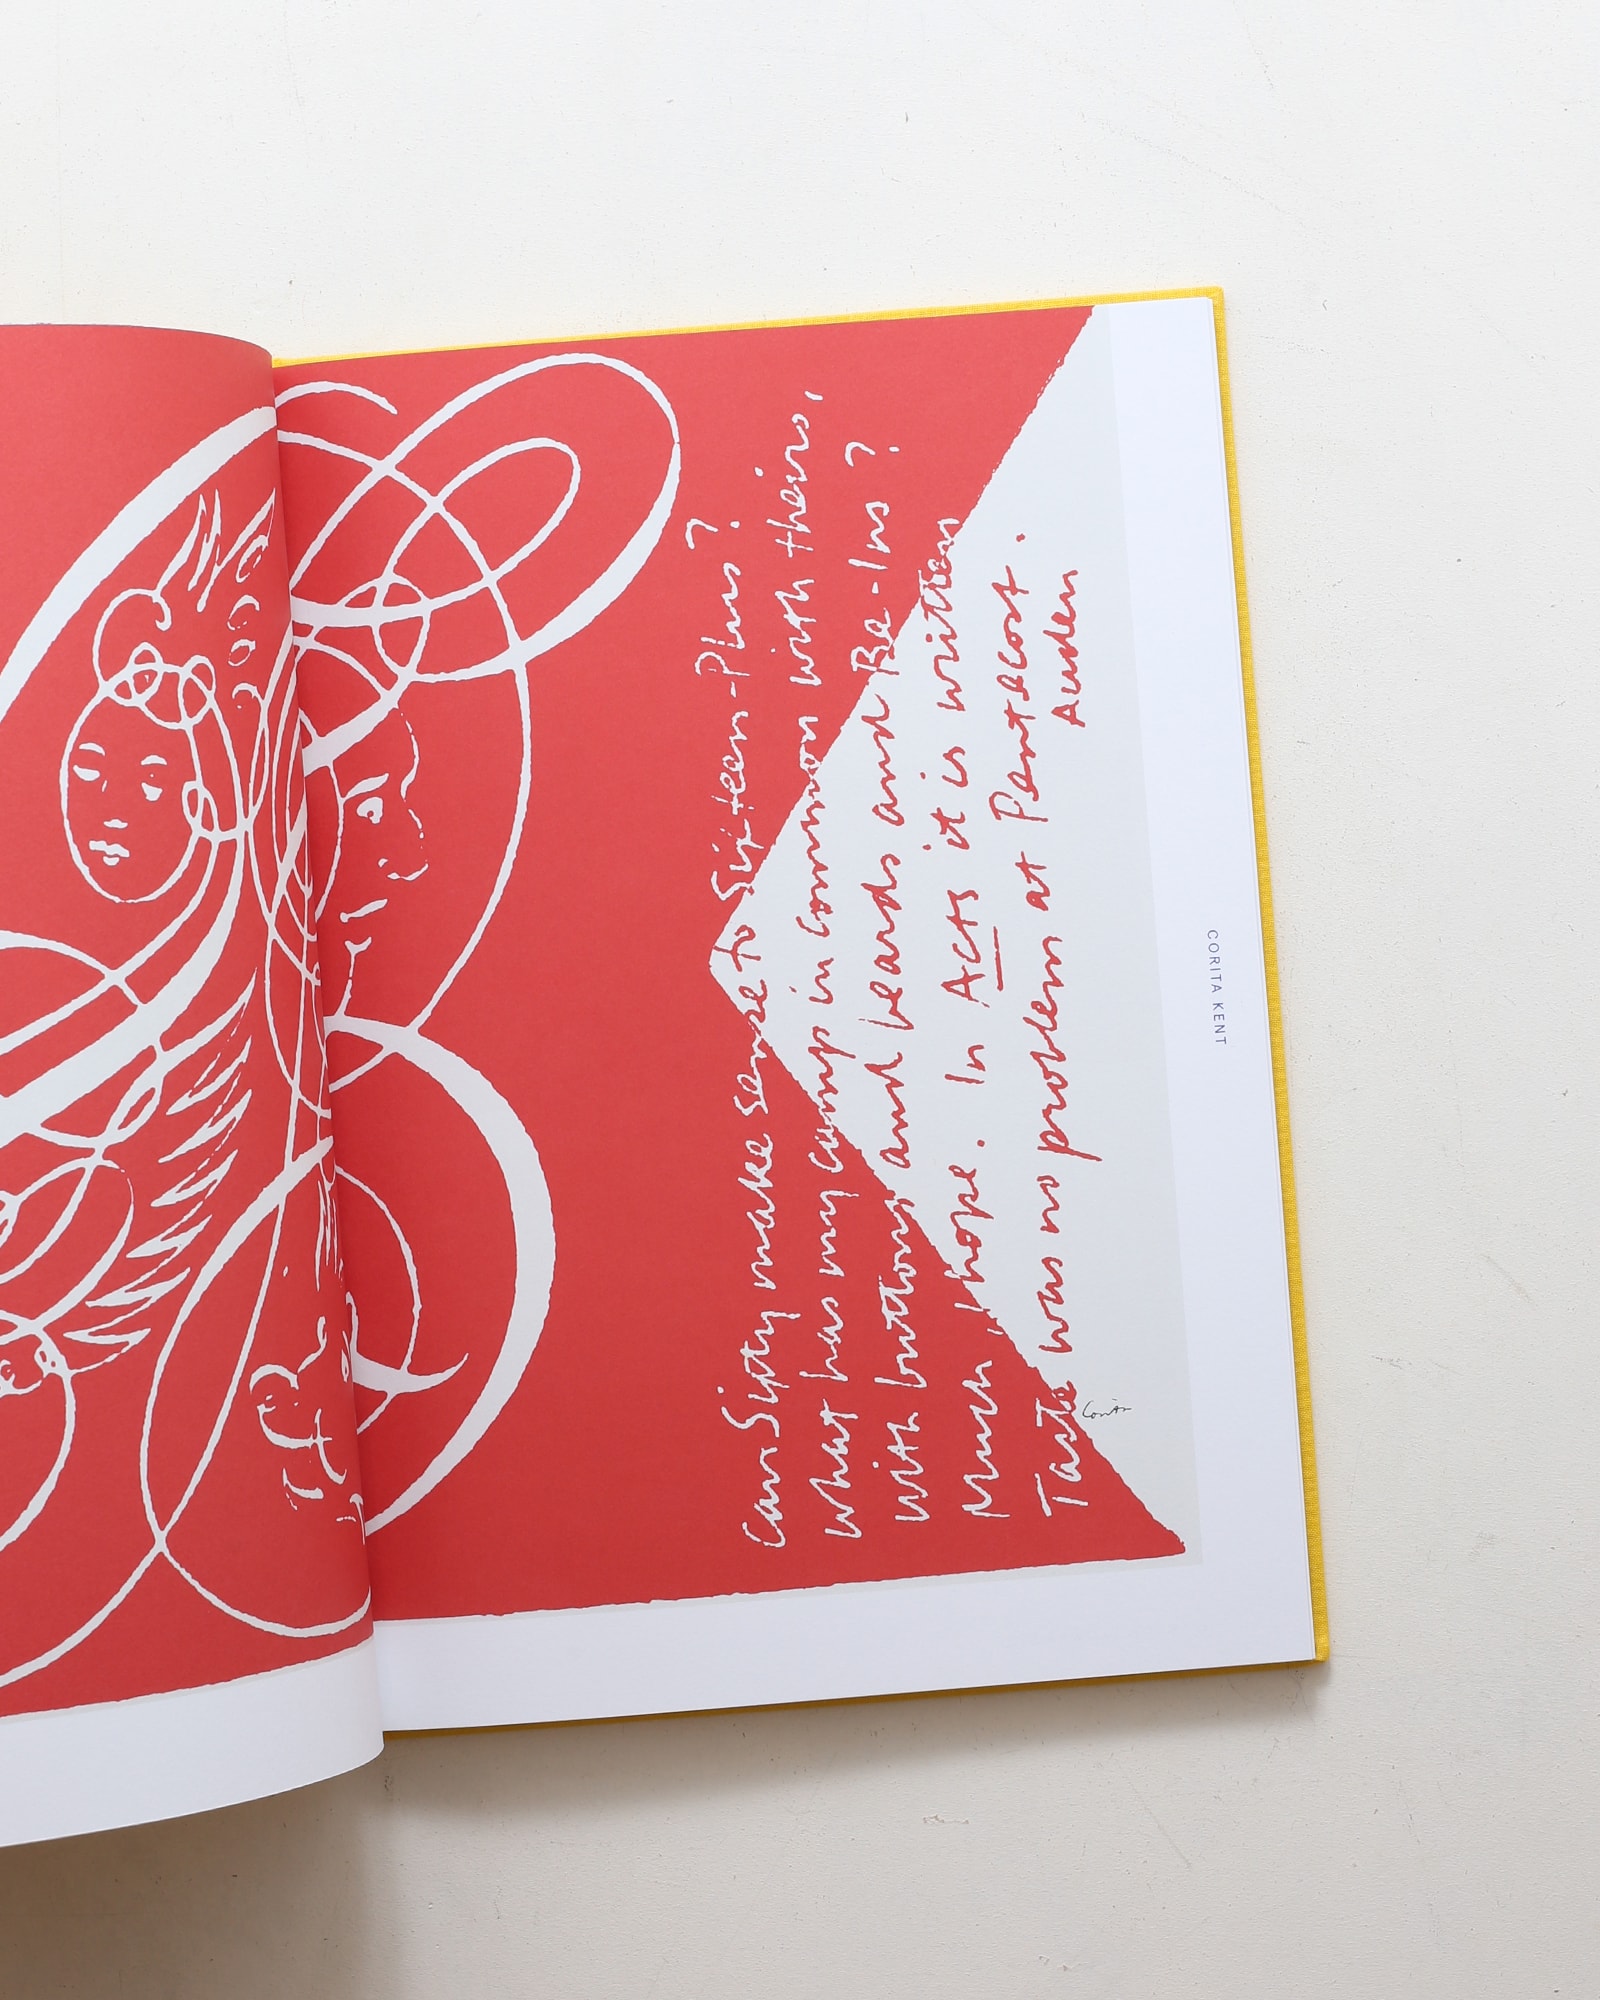 Can Sixty make sense to Sixteen-Plus?
What has my camp in common with theirs,
with buttons and beards and Be-Ins?
Much, I hope. In Acts it is written
Taste was no problem at Pentecost.
Auden
Corita
CORITA KENT